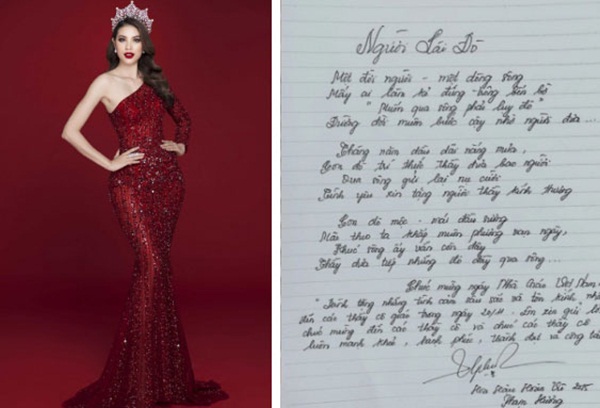 Người Lái Đò
Một đời người - một dòng sông
Mấy ai làm kẻ đứng trông bến bờ
"Muốn qua sông phải lụy đò"
Đường đời muôn bước cậy nhờ người đưa ...
Tháng năm dầu dãi nắng mưa,
Con đò trí thức thầy đưa bao người
Qua sông gửi lại nụ cười
Tình yêu xin tặng người thầy kính thương
Con đò mộc - mái đầu sương
Mãi theo ta khắp muôn phương vạn ngày,
Khúc sông ấy vẫn còn đây
Thầy đưa tiếp những đò đầy qua sông ...
Chúc mừng ngày Nhà Giáo Việt Nam
những tình cảm sâu sắc và tôn kính
đến các thầy cô giáo trong ngày 20-11. Em xin gửi lời
chúc mừng đến các thầy cô và chúc các thầy cô
luôn mạnh khỏe, hạnh phúc, thành đạt và công tác
Hoa Hậu Hoàn Vũ 2015
Phạm Hương